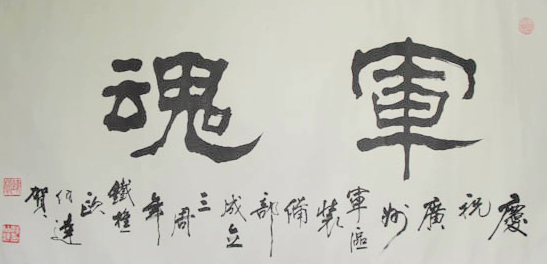 軍魂
慶祝廣州軍區裝備部成立三周年 鐵 欧 達賀